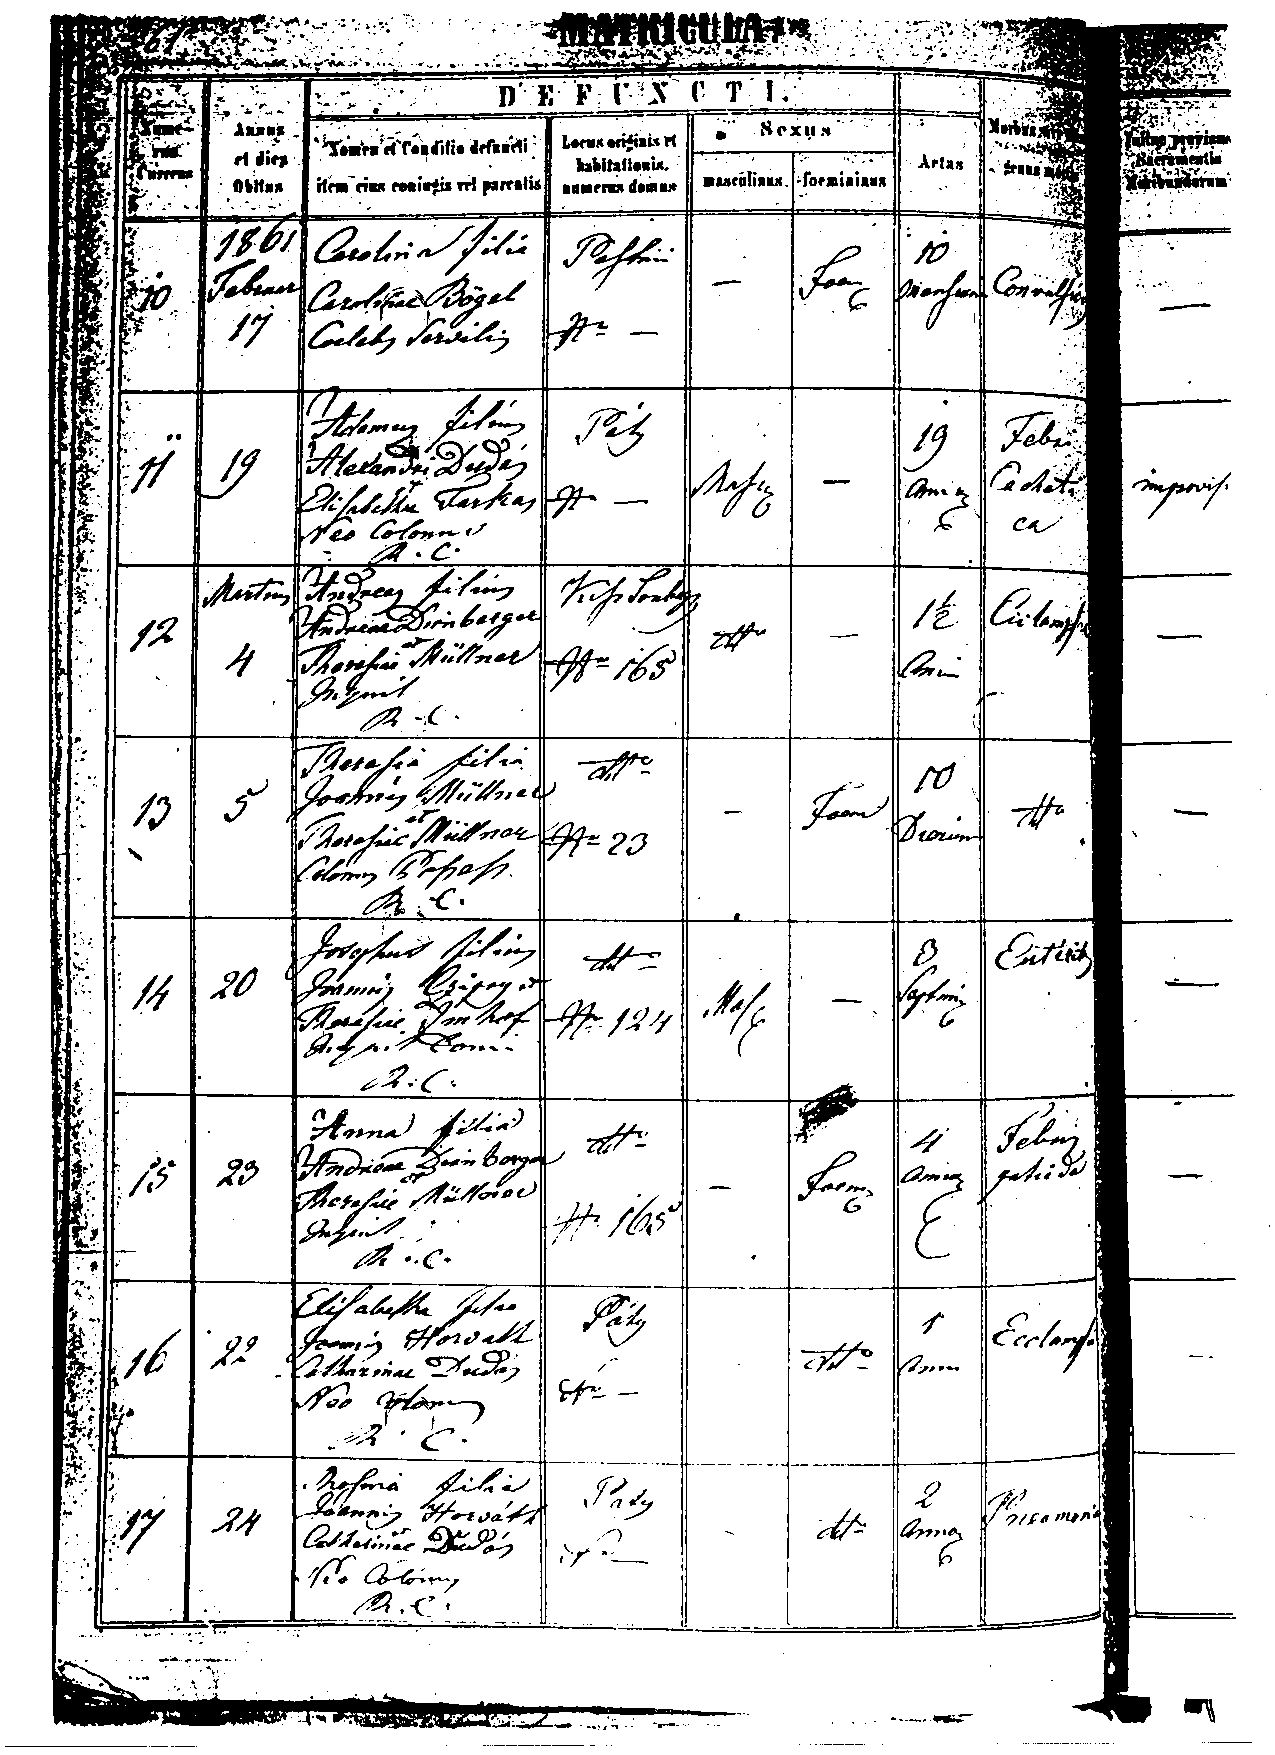 1861
MATRICULA
DEFUNCTI.
Numerus Currens
Annus et dies Obitus
Nomen et Conditio defuncti item eius coniugis vel parentis
Locus originis et habitationis, numerus domus
Sexus
masculinus.
foemininus
Aetas
Morbus
genus mortis
provisus Sacramentis Moribundorum
10
1861 Februar 17
Carolina filia
Carolinae Bögel
Coelebs Servilis
Pestini
Nro —
—
Foem
10
Mensium
Convulsio
—
11
19
Adamus filius
Alexandri Dudás
et
Elisabethae Farkas
Neo Colonus
R. C.
Páty
Nro —
Masc
—
19
Annor
Febris
Cachectica
improvis.
12
Martius 4
Andreas filius
Andreae Dirnberger
et
Theresiae Müllner
Inquil
R. C.
Nro 165
dtto
—
1½
Anni
Eclamps
—
13
5
Theresia filia
Joannis Müllner
et
Theresiae Müllner
Colonus
R. C.
dtto
Nro 23
—
Foem
10
Dierum
dtto
—
14
20
Josephus filius
Joannis
Theresiae Imhof
Inquil
R. C.
dtto
Nro 124
Masc
—
3
Septim
—
15
23
Anna filia
Andreae Dirnberger
et
Theresiae Müllner
Inquil
R. C.
dtto
Nro 165
—
Foem
4
Annor
Febris
—
16
22
Elisabetha filia
Joannis Horvath
Catharinae Dudás
Neo Colonus
R. C.
Páty
Nro —
dtto
1
Anni
Ecclamps
—
17
24
Rosina filia
Joannis Horváth
et
Catharinae Dudás
Neo Colonus
R. C.
Páty
Nro —
—
dtto
2
Annor
Pneumonia